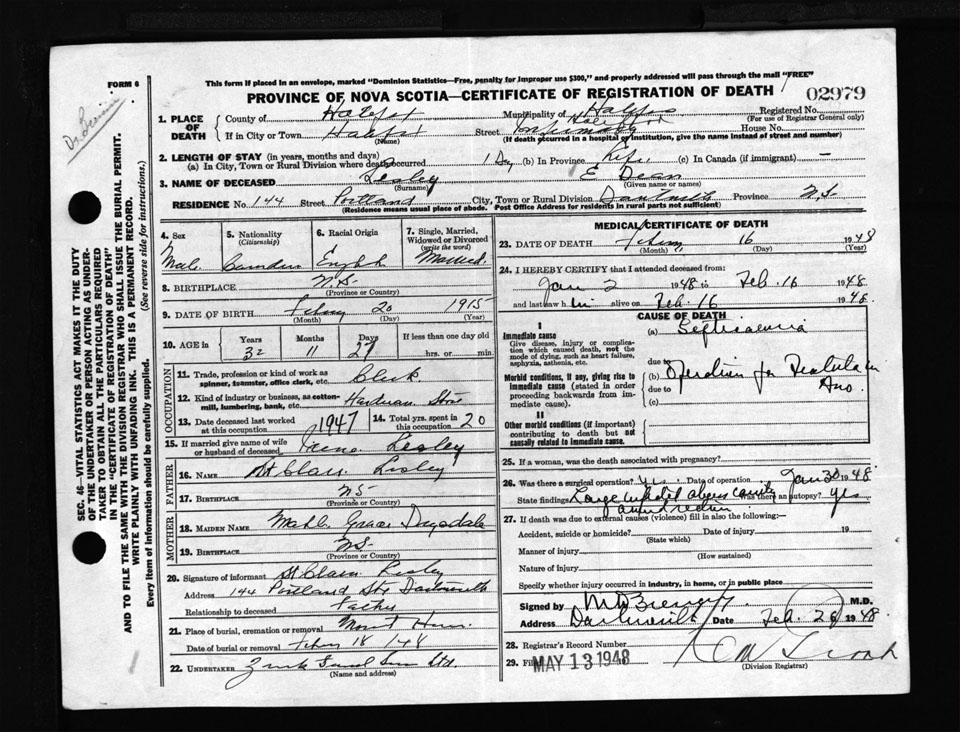 FORM 6
This form if placed in an envelope, marked "Dominion Statistics—Free, penalty for improper use $300," and properly addressed will pass through the mail "FREE"
PROVINCE OF NOVA SCOTIA—CERTIFICATE OF REGISTRATION OF DEATH
02979
1. PLACE OF DEATH
County of Halifax Municipality of Halifax Registered No.
(For use of Registrar General only)
If in City or Town Halifax Street House No.
(Name) (If death occurred in a hospital or institution, give the name instead of street and number)
2. LENGTH OF STAY (in years, months and days)
(a) In City, Town or Rural Division where death occurred 1 Day (b) In Province Life (c) In Canada (if immigrant) —
3. NAME OF DECEASED Lesley E Dean
(Surname) (Given name or names)
RESIDENCE No. 144 Street Portland City, Town or Rural Division Dartmouth Province N.S.
(Residence means usual place of abode. Post Office Address for residents in rural parts not sufficient)
4. Sex 5. Nationality (Citizenship) 6. Racial Origin 7. Single, Married, Widowed or Divorced (write the word)
Male Canadian English Married
8. BIRTHPLACE N.S.
(Province or Country)
9. DATE OF BIRTH 20 1915
(Month) (Day) (Year)
10. AGE in Years Months Days If less than one day
32 11 27 hrs. or min.
OCCUPATION
11. Trade, profession or kind of work as spinner, teamster, office clerk, etc. Clerk
12. Kind of industry or business, as cotton-mill, lumbering, bank, etc. Hardware Store
13. Date deceased last worked at this occupation 1947 14. Total yrs. spent in this occupation 20
15. If married give name of wife or husband of deceased Irene Lesley
FATHER
16. NAME St Clair Lesley
17. BIRTHPLACE NS
(Province or Country)
MOTHER
18. MAIDEN NAME Grace Drysdale
19. BIRTHPLACE NS.
(Province or Country)
20. Signature of informant St Clair Lesley
Address 144 Portland St Dartmouth
Relationship to deceased Father
21. Place of burial, cremation or removal Mount Herm.
Date of burial or removal 18/48
22. UNDERTAKER
(Name and address)
MEDICAL CERTIFICATE OF DEATH
23. DATE OF DEATH 16 1948
(Month) (Day) (Year)
24. I HEREBY CERTIFY that I attended deceased from:
Jan 2 1948 to Feb. 16 1948
and last saw him alive on Feb. 16 1948.
CAUSE OF DEATH
I
Immediate cause
Give disease, injury or complication which caused death, not the mode of dying, such as heart failure, asphyxia, asthenia, etc.
(a) Septicaemia
due to
Morbid conditions, if any, giving rise to immediate cause (stated in order proceeding backwards from immediate cause).
(b) Operation for Fistula in Ano
due to
(c)
II
Other morbid conditions (if important) contributing to death but not causally related to immediate cause.
25. If a woman, was the death associated with pregnancy?
26. Was there a surgical operation? Yes. Date of operation Jan 30 1948
State findings Large abscess cavity Was there an autopsy? yes
27. If death was due to external causes (violence) fill in also the following:—
Accident, suicide or homicide? Date of injury 19
(State which)
Manner of injury
(How sustained)
Nature of injury
Specify whether injury occurred in industry, in home, or in public place
Signed by M.D.
Address Dartmouth Date Feb. 26 1948
28. Registrar's Record Number
29. Filed MAY 13 1948
(Division Registrar)
SEC. 46—VITAL STATISTICS ACT MAKES IT THE DUTY
OF THE UNDERTAKER OR PERSON ACTING AS UNDER-
TAKER TO OBTAIN ALL THE PARTICULARS REQUIRED
IN THE "CERTIFICATE OF REGISTRATION OF DEATH"
AND TO FILE THE SAME WITH THE DIVISION REGISTRAR WHO SHALL ISSUE THE BURIAL PERMIT.
WRITE PLAINLY WITH UNFADING INK. THIS IS A PERMANENT RECORD.
Every item of information should be carefully supplied. (See reverse side for instructions.)